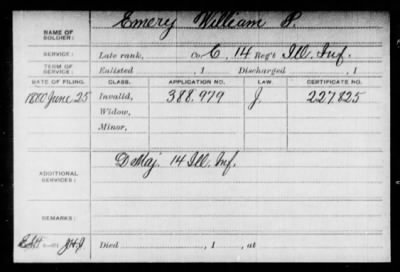 NAME OF SOLDIER: Emery William P.
SERVICE: Late rank, Co. C, 14 Reg't Ill. Inf.
TERM OF SERVICE: Enlisted , 1 Discharged , 1
DATE OF FILING. CLASS. APPLICATION NO. LAW. CERTIFICATE NO.
1880 June 25 Invalid, 388.979 J. 227.825
Widow,
Minor,
ADDITIONAL SERVICES: D Maj. 14 Ill. Inf.
REMARKS:
Died , 1 , at